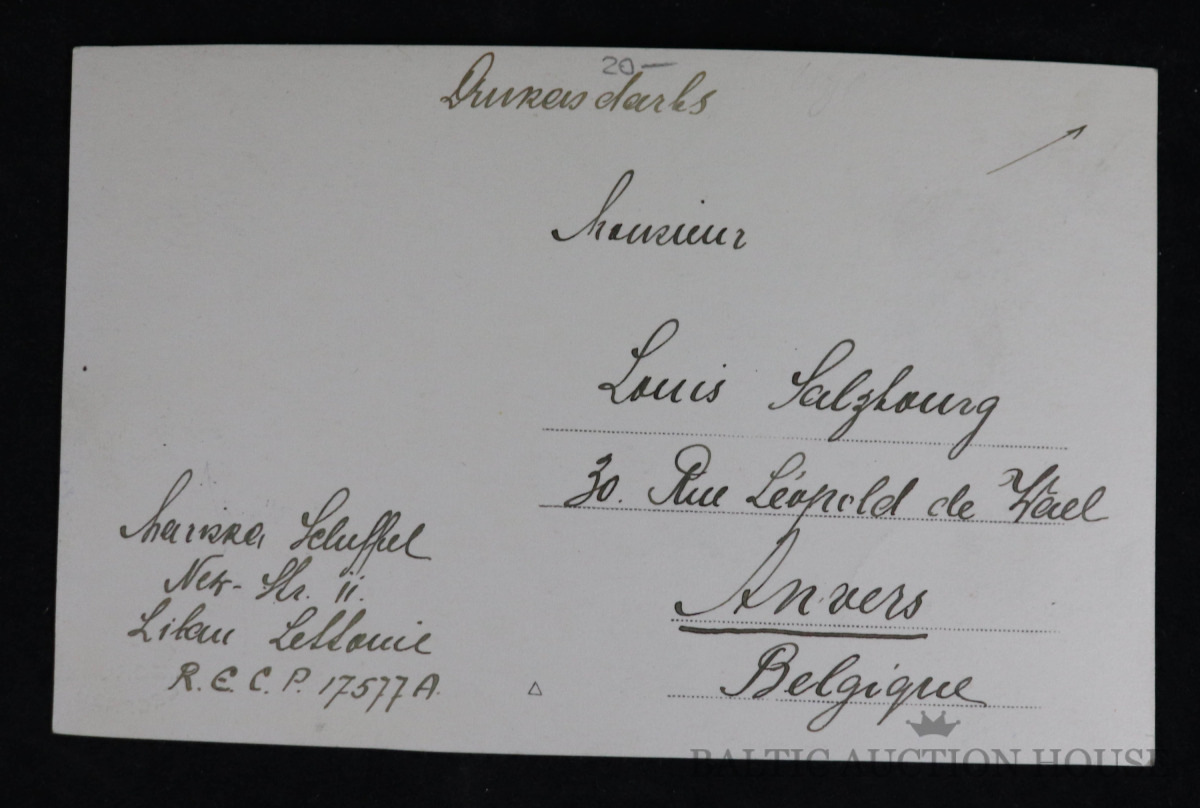 20 —
Drukas darbs
Monsieur
Louis Salzbourg
30. Rue Léopold de Wael
Anvers
Belgique
Scheffel
Str. 11.
Libau Lettonie
R.E.C.P. 17577A.
BALTIC AUCTION HOUSE